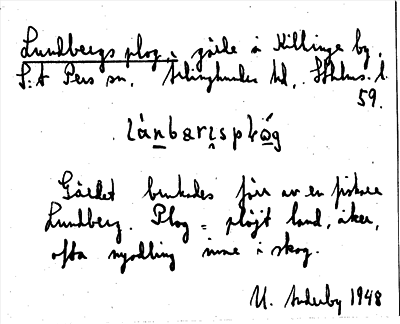 Lundbergs plog, gärde å Killinge by,
S:t Pers sn, Ärlinghundra hd, Sthlms l.
59.
lànbærɪsplóg
Gärdet brukades förr av en fiskare
Lundberg. Plog = plöjt land, åker,
ofta nyodling inne i skog.
U. Anderby 1948